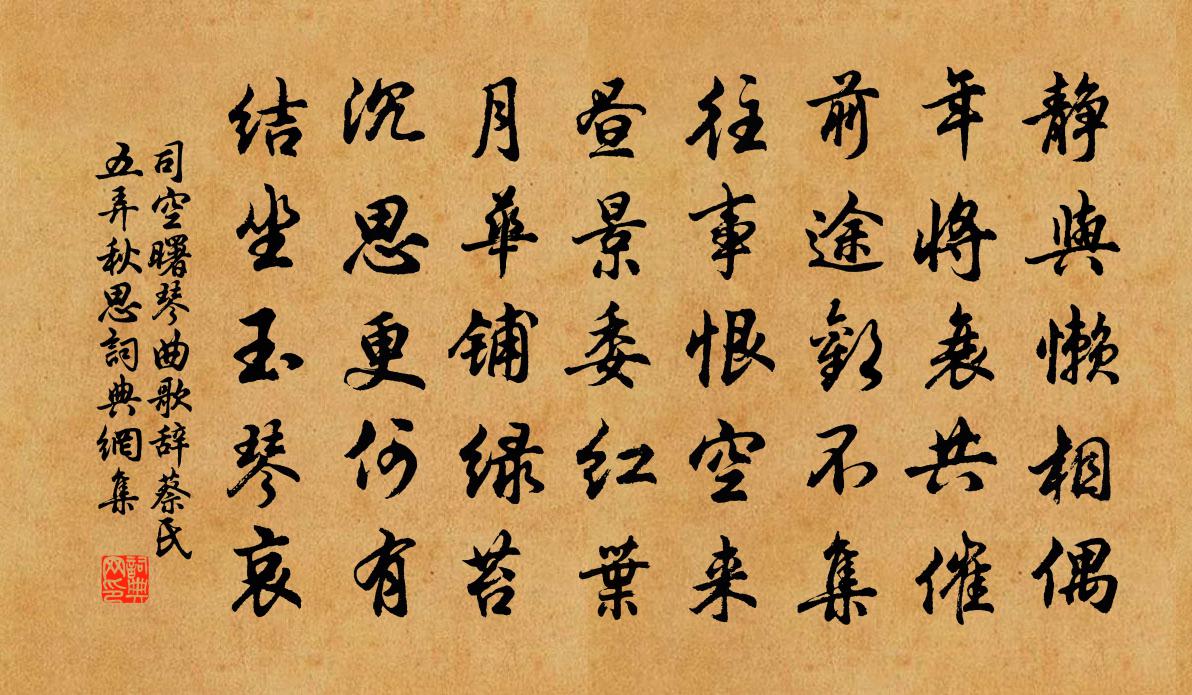 静與懒相偶
年将衰共催
前途歡不集
往事恨空来
昼景委红葉
月華铺绿苔
沉思更何有
结坐玉琴哀
司空曙琴曲歌辞蔡氏
五弄秋思詞典網集
詞典网印